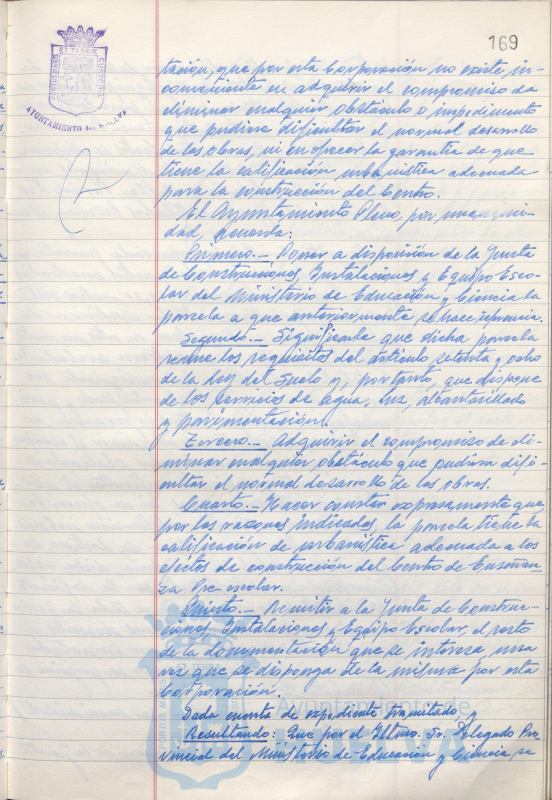 169
PORTUS MARIS ET TERRAE CUSTODIA
AYUNTAMIENTO DE HUELVA
tación, que por esta Corporación no existe in-
conveniente en adquirir el compromiso de
eliminar cualquier obstáculo o impedimento
que pudiera dificultar el normal desarrollo
de las obras, ni en ofrecer la garantía de que
tiene la calificación urbanística adecuada
para la construcción del Centro.
El Ayuntamiento Pleno, por unanimi-
dad, acuerda:
Primero.- Poner a disposición de la Junta
de Construcciones, Instalaciones y Equipo Esco-
lar del Ministerio de Educación y Ciencia la
parcela a que anteriormente se hace referencia.
Segundo.- Significarle que dicha parcela
reúne los requisitos del artículo setenta y ocho
de la Ley del Suelo y, por tanto, que dispone
de los servicios de agua, luz, alcantarillado
y pavimentación.
Tercero.- Adquirir el compromiso de eli-
minar cualquier obstáculo que pudiera difi-
cultar el normal desarrollo de las obras.
Cuarto.- Hacer constar expresamente que
por las razones indicadas, la parcela tiene la
calificación de urbanística adecuada a los
efectos de construcción del Centro de Enseñan-
za Pre-escolar.
Quinto.- Remitir a la Junta de Construc-
ciones, Instalaciones y Equipo Escolar, el resto
de la documentación que se interesa una
vez que se disponga de la misma por esta
Corporación.
Dada cuenta de expediente tramitado, y
Resultando: Que por el Iltmo. Sr. Delegado Pro-
vincial del Ministerio de Educación y Ciencia se
Ayuntamiento de
HUELVA